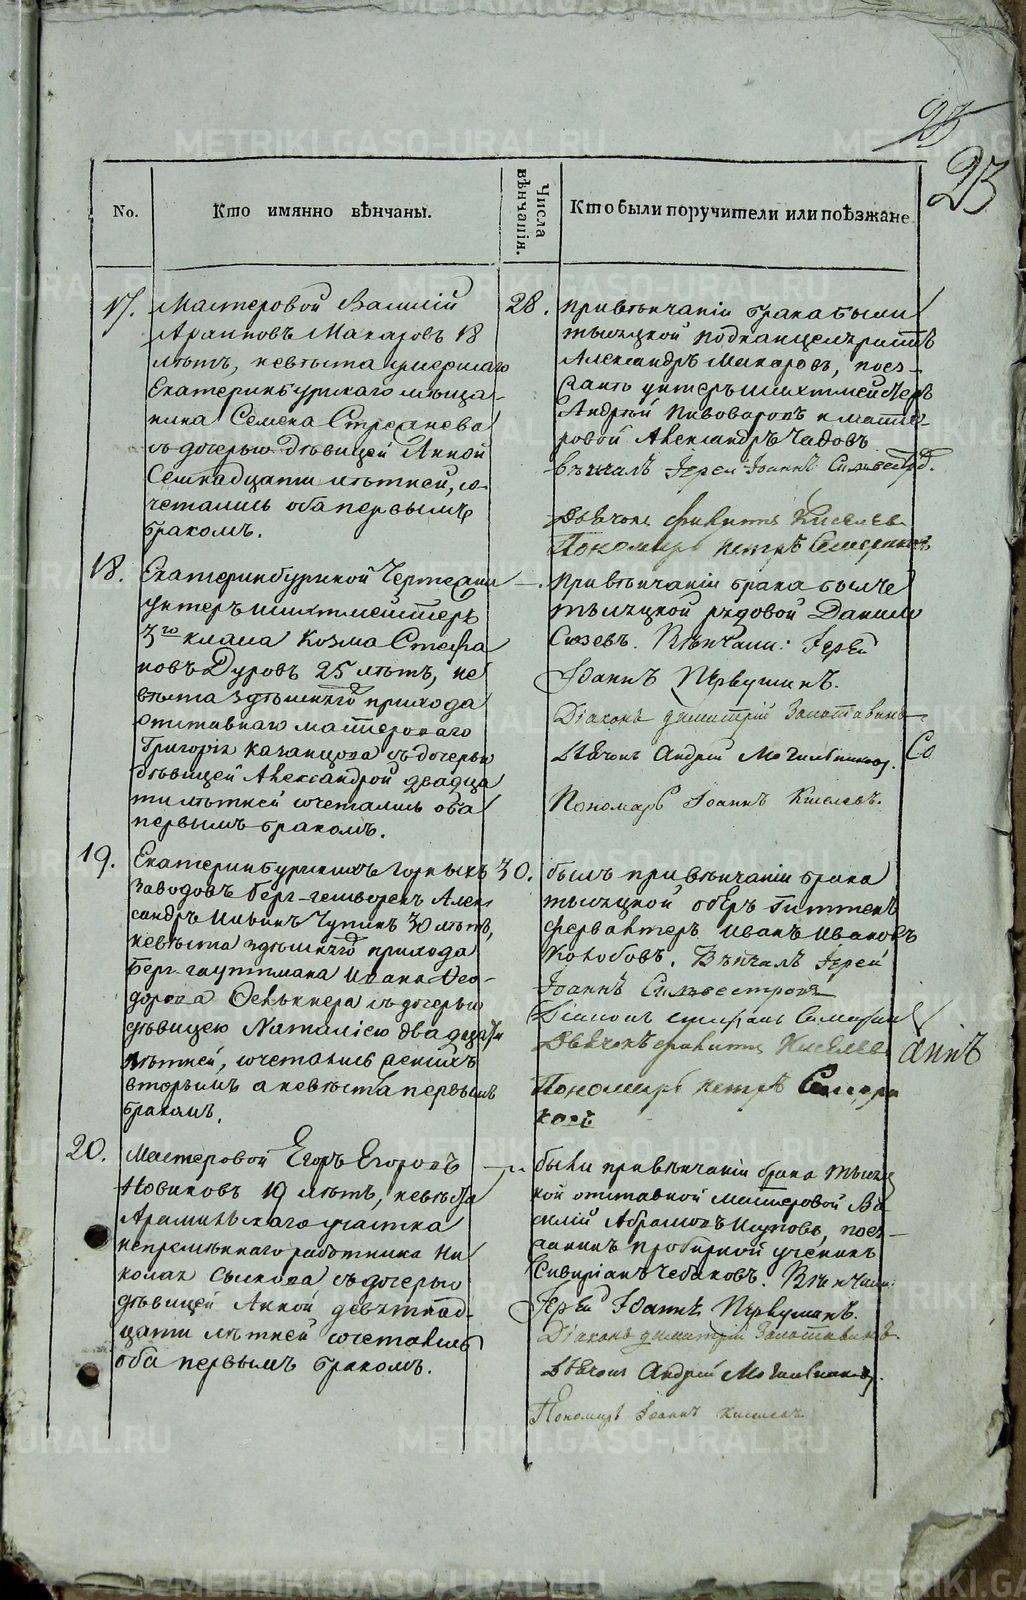 25
23
No.
Кто имянно вѣнчаны.
Числа вѣнчанія.
Кто были поручители или поѣзжане
17.
Мастеровой Василій
Макаровъ 18
лѣтъ, невѣста умершаго
Екатеринбургскаго мѣща-
нина Семена
съ дочерью дѣвицей Анной
Семнадцати лѣтней, со-
четались оба первымъ
бракомъ.
28.
При вѣнчаніи брака были
тысяцкой подканцеляристъ
Александръ Макаровъ, поез-
жанъ унтеръ шихтмейстеръ
Андрей Пивоваровъ и масте-
ровой Александръ Чадовъ
вѣнчалъ Іерей Іоаннъ
Дьячокъ Киселев
Пономарь Петръ
18.
Екатеринбургской Чертежни
унтеръ шихтмейстеръ
3го класа Козма Степа
новъ Дуровъ 25 лѣтъ, не
вѣста здѣшняго прихода
отставнаго мастероваго
Григорія Казанцова съ дочерью
дѣвицей Александрой двадца
ти лѣтней сочетались оба
первымъ бракомъ.
—.
При вѣнчаніи брака былъ
тысяцкой рядовой Данило
Сюзевъ. Вѣнчали: Іерей
Іоаннъ Первушинъ.
Діаконъ Димитрій
Дьячокъ Андрей
Пономарь Іоаннъ Киселевъ.
Со
19.
Екатеринбургскихъ Горныхъ
Заводовъ Берг-гешворенъ Алек
сандръ Ильинъ Чупинъ 30 лѣтъ,
невѣста здѣшняго прихода
Берг-гауптмана Ивана Фео-
дорова съ дочерью
дѣвицею Наталіею двадцати
лѣтней, сочетались женихъ
вторымъ а невѣста первымъ
бракомъ.
30.
былъ при вѣнчаніи брака
тысяцкой оберъ гиттен
фервалтеръ Иванъ Ивановъ
Колобовъ. Вѣнчалъ Іерей
Іоаннъ
Діаконъ
Дьячокъ Киселев
Пономарь Петръ
аннъ
20.
Мастеровой Егоръ Егоровъ
Новиковъ 19 лѣтъ, невѣста
Арамильскаго участка
непремѣннаго работника Ни
колая съ дочерью
дѣвицей Анной девятнад-
цати лѣтней сочетались
оба первымъ бракомъ.
—..
были при вѣнчаніи брака тысяц
кой отставной мастеровой Ва
силій Абрамовъ поез-
жанинъ пробирной ученикъ
Чебаковъ. Вѣнчали:
Іерей Іоаннъ Первушинъ.
Діаконъ Димитрій
Дьячокъ Андрей
Пономарь Іоаннъ Киселевъ
METRIKI.GASO-URAL.RU